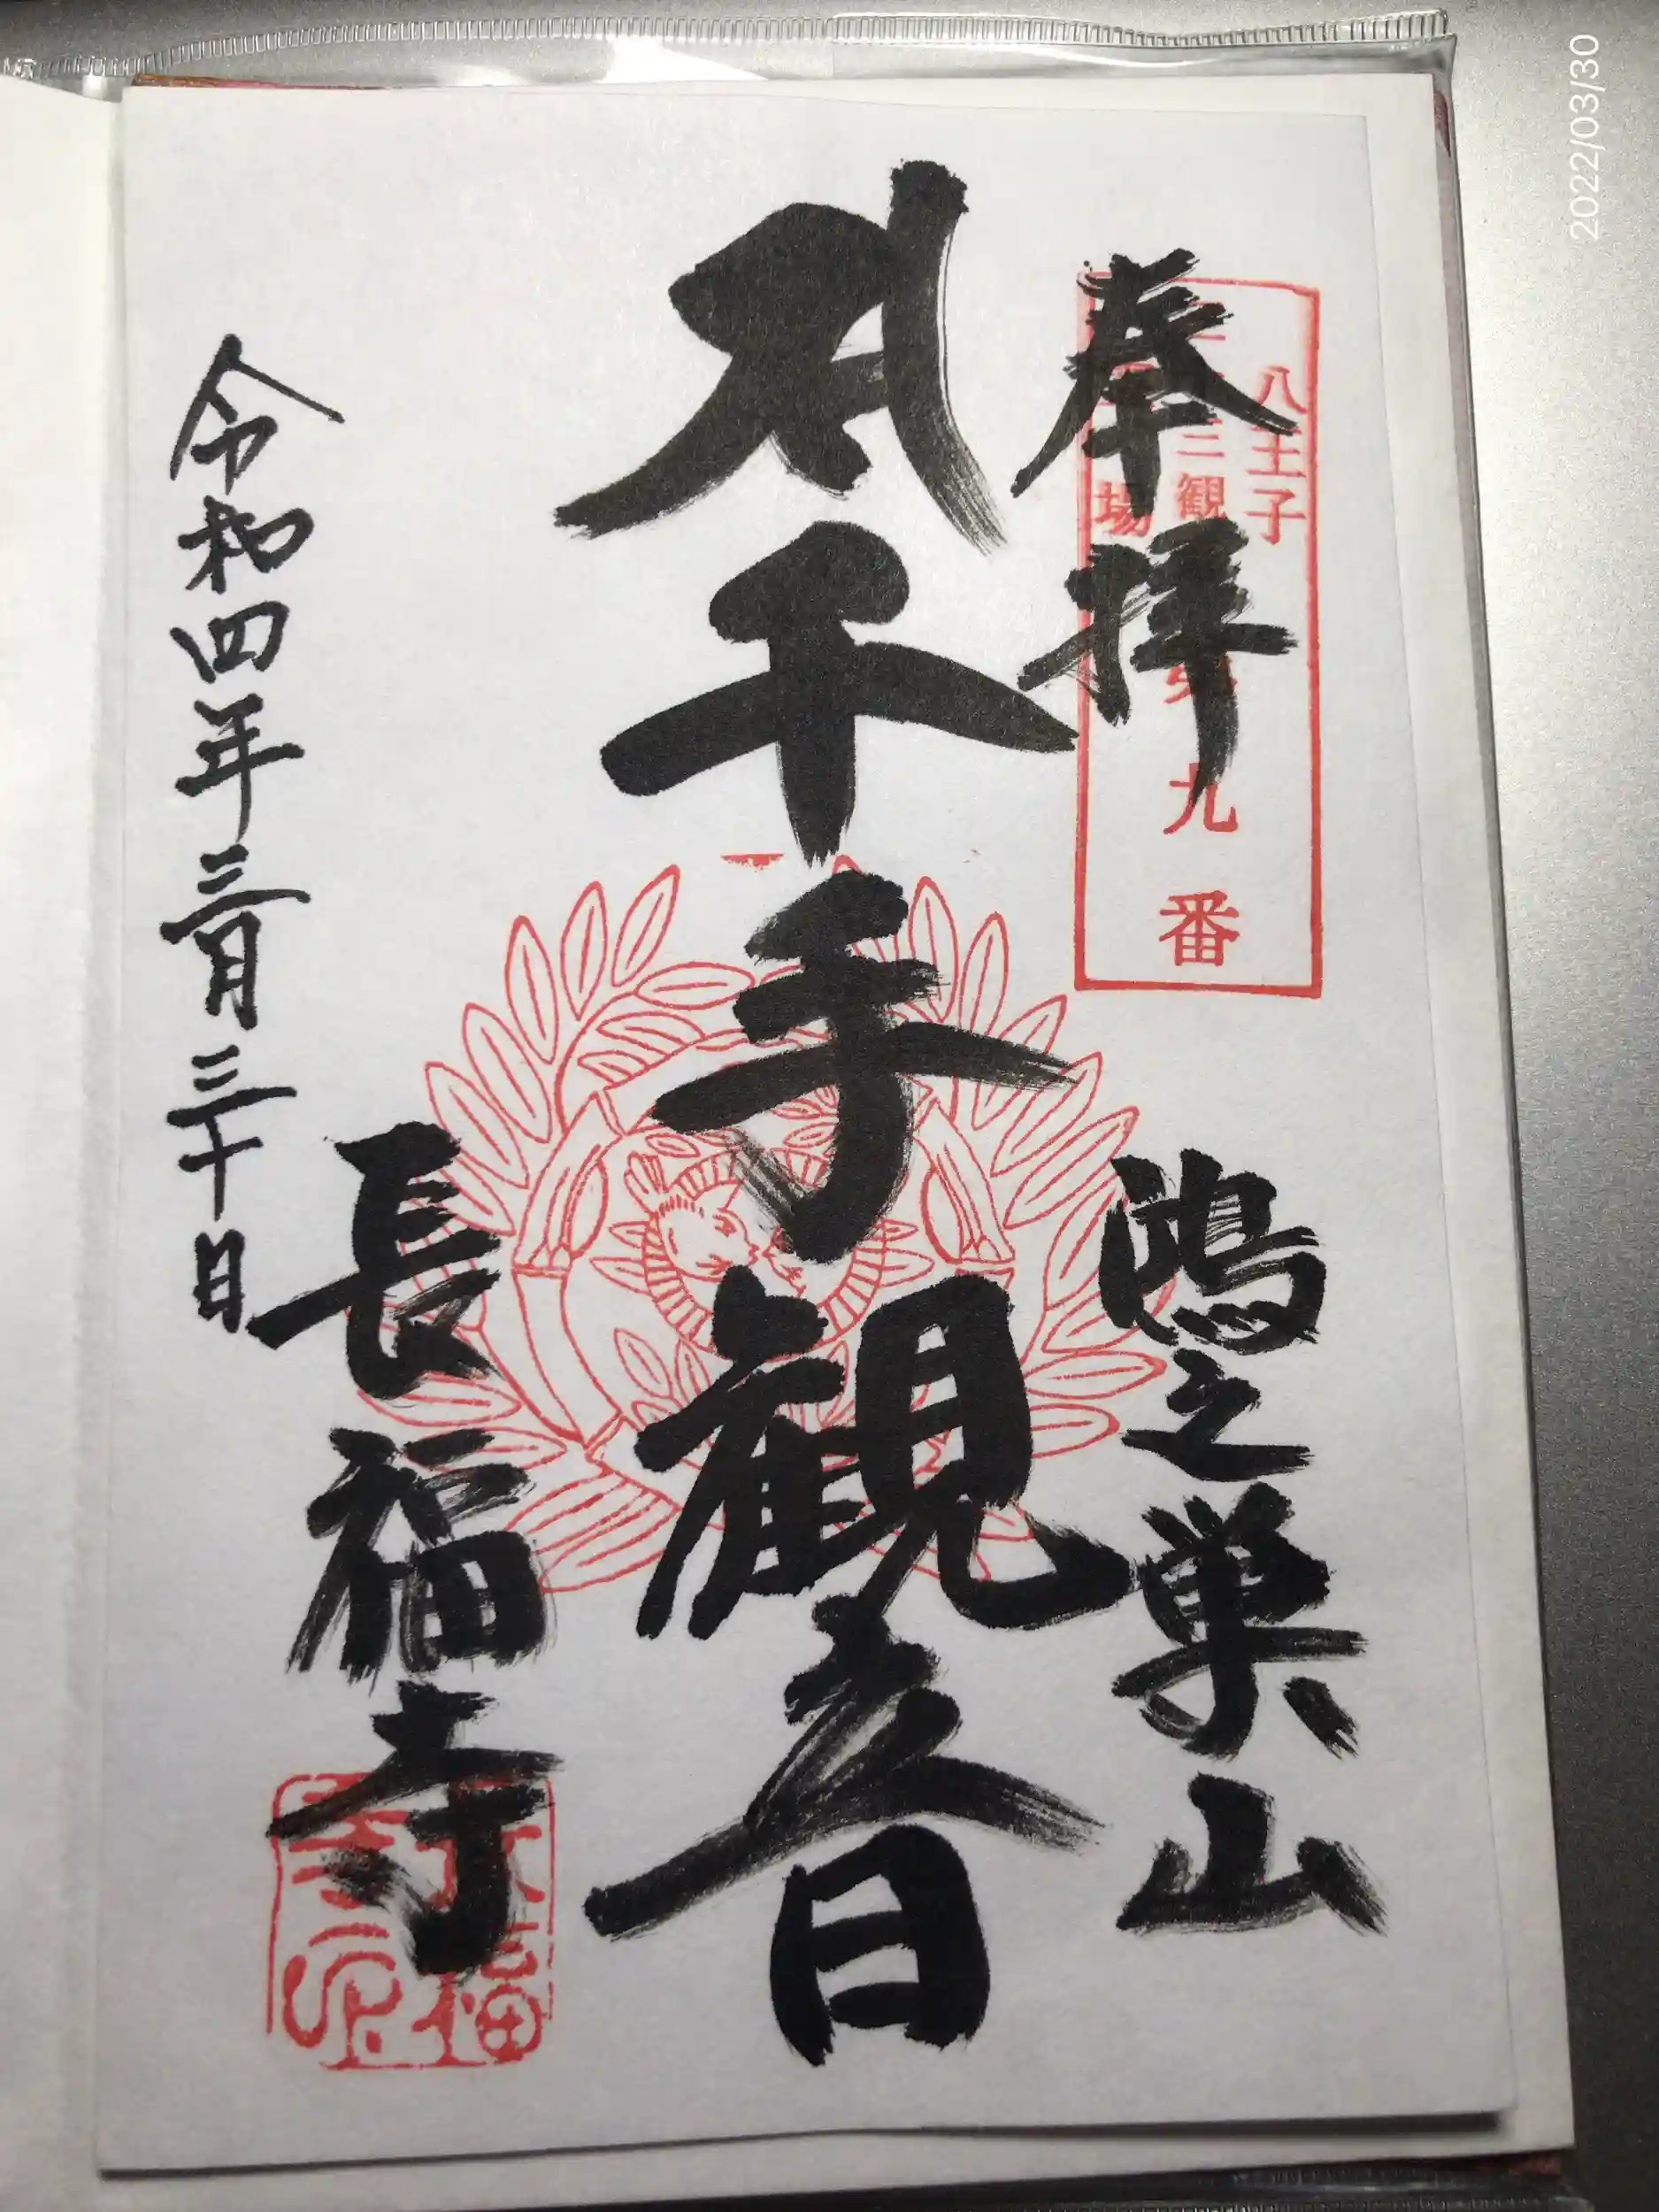 奉拝
八王子
三観
場
九番
鴻之巣山
千手観音
長福寺
令和四年三月三十日
2022/03/30